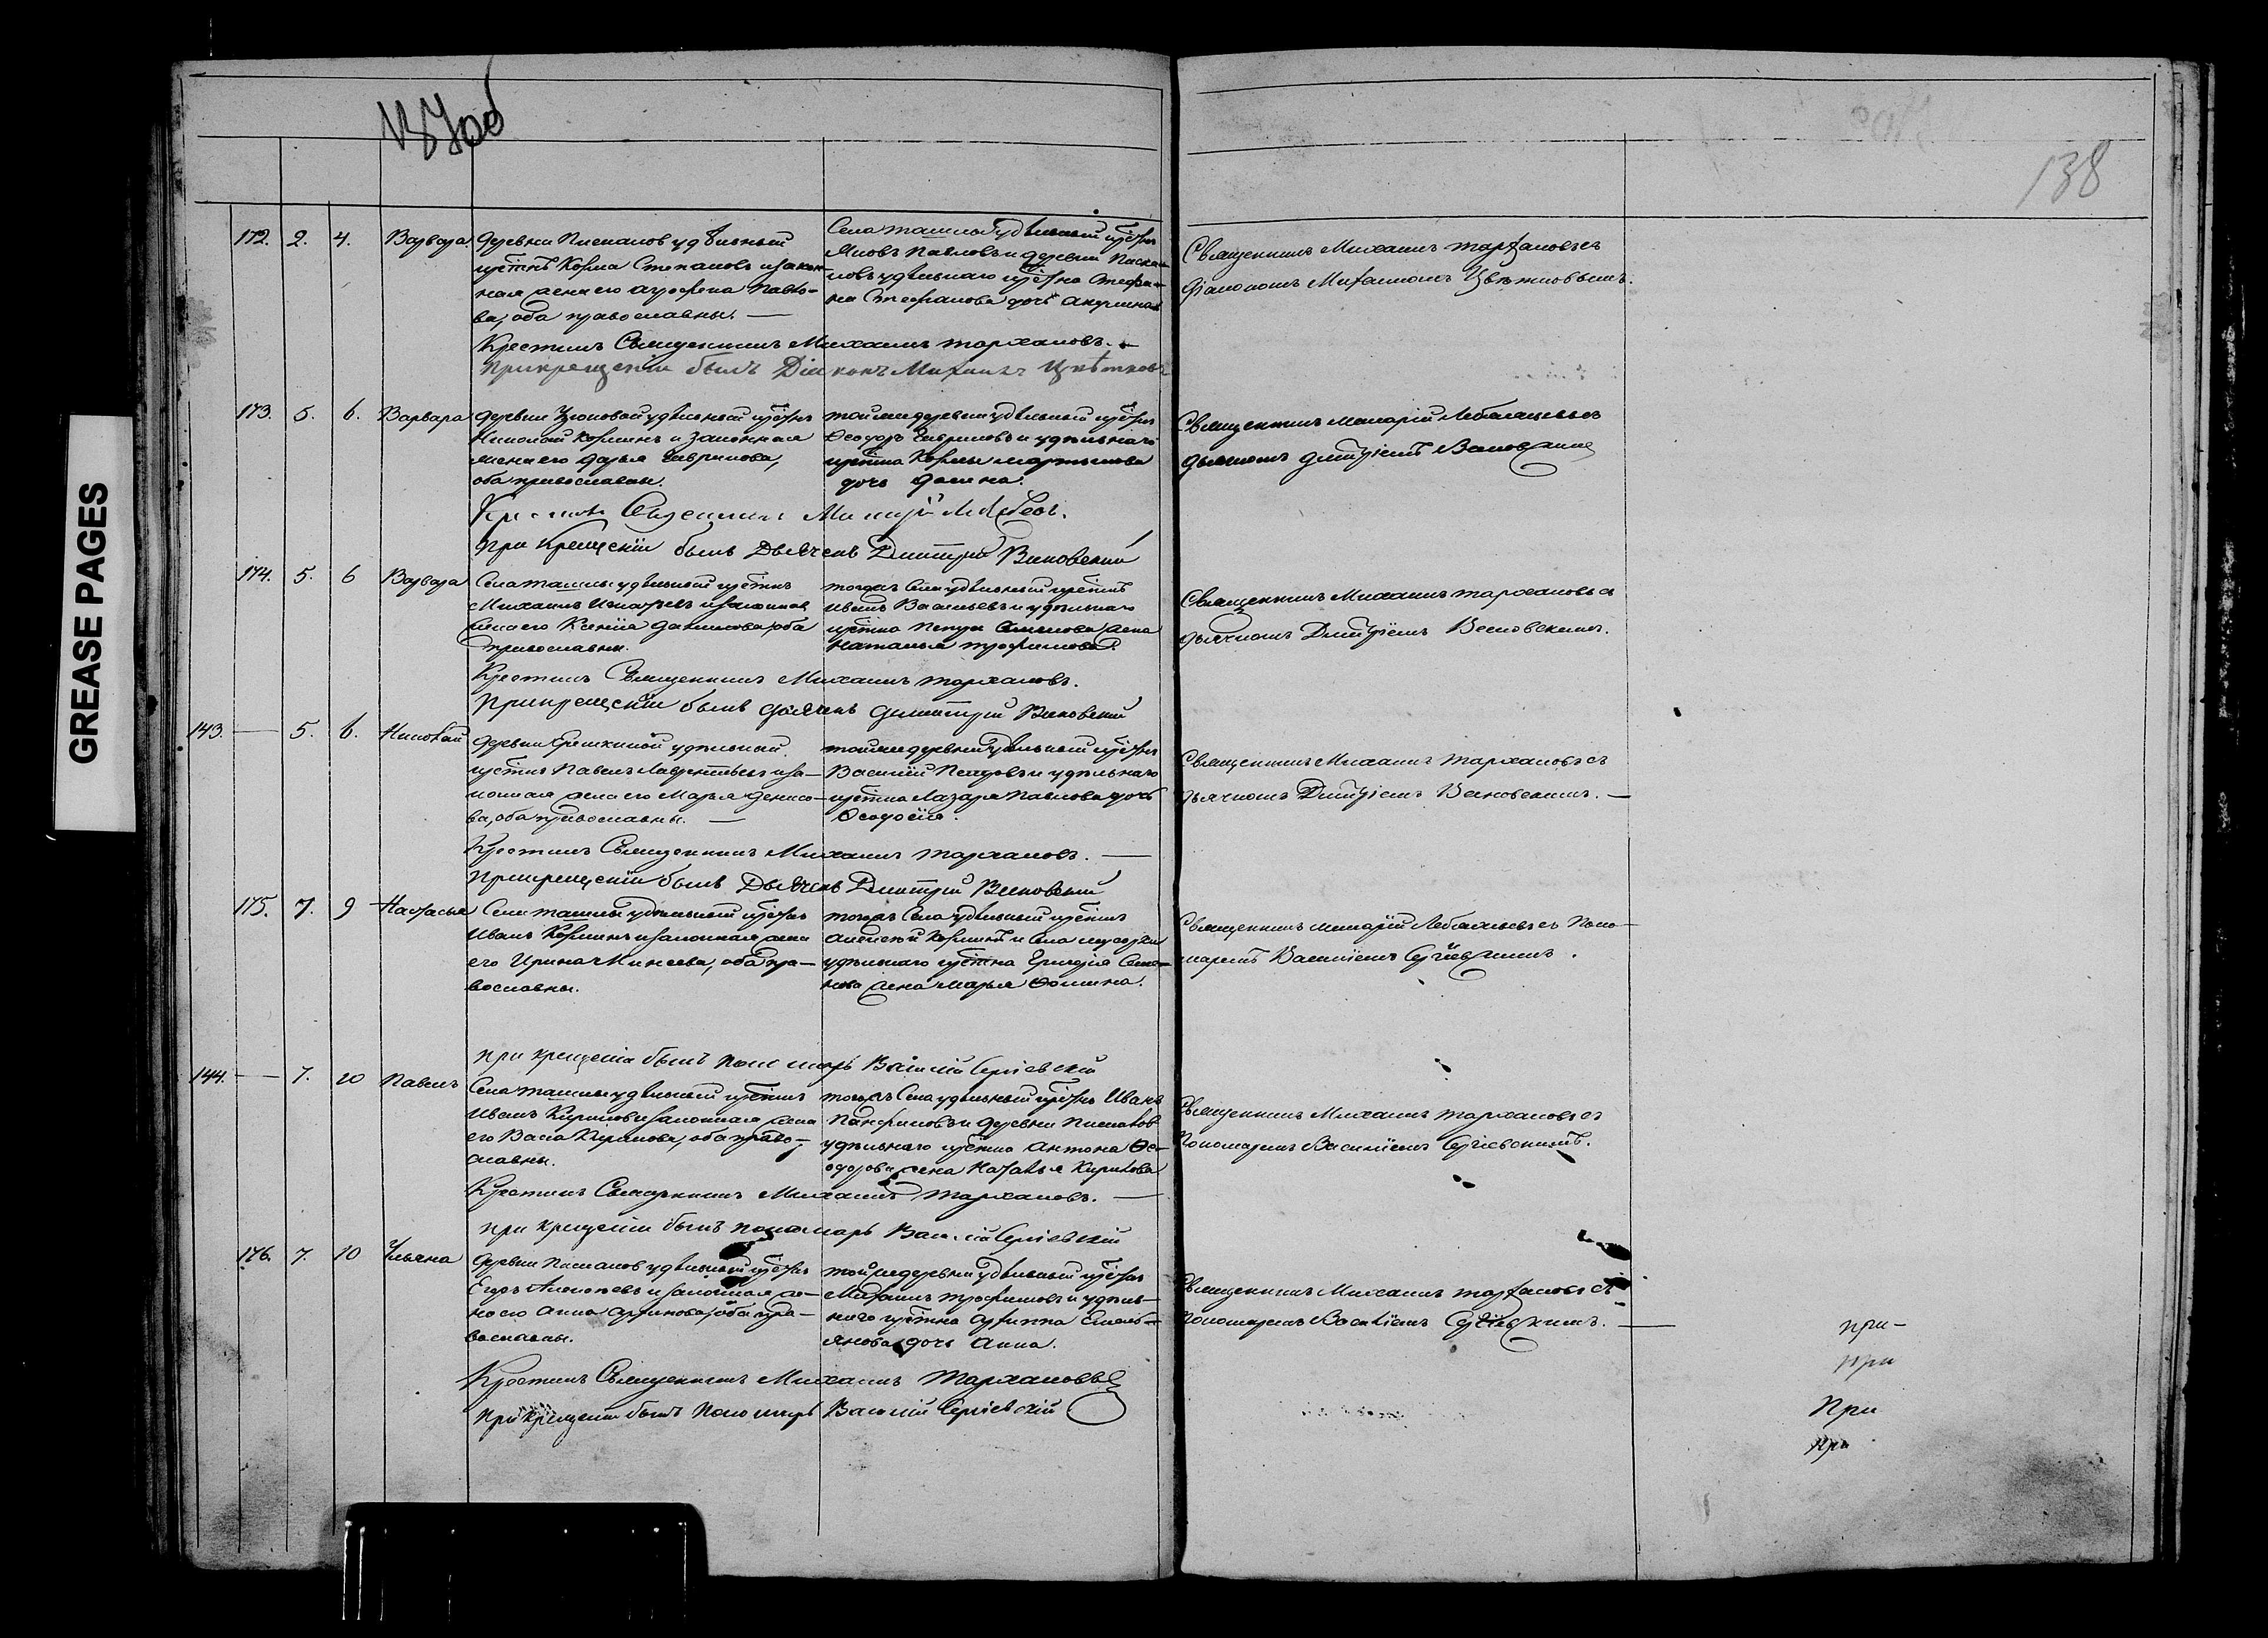 138
172. 2. 4. Варвара деревни Пискалов удѣльный
крѣстн Козма Степановъ и закон-
ная жена его Агрофена Павло-
ва, оба православны. —
Села Ташлы удѣльный крѣстн
Яковъ Павловъ и деревни Писка-
ловъ удѣльнаго крѣстна Стефа-
на Стефанова дочь Акулина
Священникъ Михаилъ Тархановъ съ
Діакономъ Михаиломъ Цвѣтковымъ.
Крестилъ Священникъ Михаилъ Тархановъ. —
При крещеніи былъ Діаконъ Михаилъ Цвѣтковъ
173. 5. 6. Варвара деревни удѣльный крѣстн
Николай Козминъ и законная
жена его Дарья Гаврилова,
оба православны.
той же деревни удѣльный крѣстн
Ѳеодоръ Гавриловъ и удѣльнаго
крѣстна Козмы Мартынова
дочь
Священникъ съ
дьячкомъ Дмитріемъ
Священникъ
При крещеніи былъ Дьячекъ Дмитрій
174. 5. 6 Варвара Села Ташлы удѣльный крѣстнъ
Михаилъ и законная
жена его Ксенія Данилова, оба
православны.
тогожъ Села удѣльный крѣстнъ
Иванъ Васильевъ и удѣльнаго
крѣстна Петра Семенова жена
Наталья Трофимова.
Священникъ Михаилъ Тархановъ съ
дьячкомъ Дмитріемъ
Крестилъ Священникъ Михаилъ Тархановъ.
При крещеніи былъ дьячекъ Димитрій
143. — 5. 6. Николай деревни Ерышкиной удѣльный
крѣстнъ Павелъ Лаврентьевъ и за-
конная жена его Марья Денисо-
ва, оба православны. —
той же деревни удѣльный крѣстн
Василій и удѣльнаго
крѣстна Лазаря Павлова дочь
Ѳеодосія.
Священникъ Михаилъ Тархановъ съ
дьячкомъ Дмитріемъ —
Крестилъ Священникъ Михаилъ Тархановъ. —
При крещеніи былъ Дьячекъ Дмитрій
175. 7. 9 Настасья Села Ташлы удѣльный крѣстн
Иванъ Козминъ и законная жена
его Ирина Минеева, оба пра-
вославны.
тогожъ Села удѣльный крѣстнъ
Алексѣй Козминъ и Села
удѣльнаго крѣстна Григорія Семе-
нова жена Марья Ѳомина.
Священникъ съ Поно-
маремъ Василіемъ Сергіевскимъ.
При крещеніи былъ Пономарь Василій Сергіевскій
144. — 7. 10 Павелъ Села Ташлы удѣльный крѣстнъ
Иванъ Кириловъ и законная жена
его Васса Кирилова, оба право-
славны.
тогожъ Села удѣльный крѣстнъ Иванъ
Панфиловъ и деревни Пискалов
удѣльнаго крѣстна Антона Ѳе-
одорова жена Наталья Кирилова
Священникъ Михаилъ Тархановъ съ
Пономаремъ Василіемъ Сергіевскимъ.
Крестилъ Священникъ Михаилъ Тархановъ. —
При крещеніи былъ пономарь Василій Сергіевскій
176. 7. 10 Ульяна деревни Пискалов удѣльный крѣстн
Егоръ и законная же-
на его Анна оба пра-
вославны.
той же деревни удѣльный крѣстн
Михаилъ Трофимовъ и удѣль-
наго крѣстна Архиппа Емель-
янова дочь Анна.
Священникъ Михаилъ Тархановъ съ
Пономаремъ Василіемъ Сергіевскимъ. —
Крестилъ Священникъ Михаилъ Тархановъ
При крещеніи былъ Пономарь Василій Сергіевскій
при-
при
При
При
GREASE PAGES